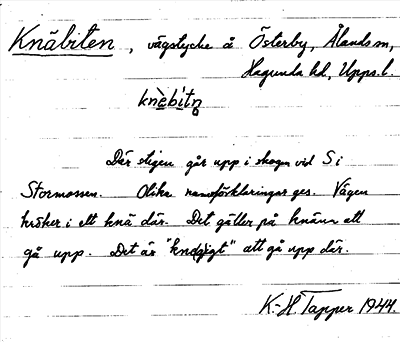 Knäbiten, vägstycke å Österby, Ålands sn,
Hagunda hd, Upps. l.
knɛ̀bitn̥
Där stigen går upp i skogen vid S i
Stormossen. Olika namnförklaringar ges. Vägen
kröker i ett knä där. Det gäller på knäna att
gå upp. Det är "knögigt" att gå upp där.
K.-H. Tapper 1944.